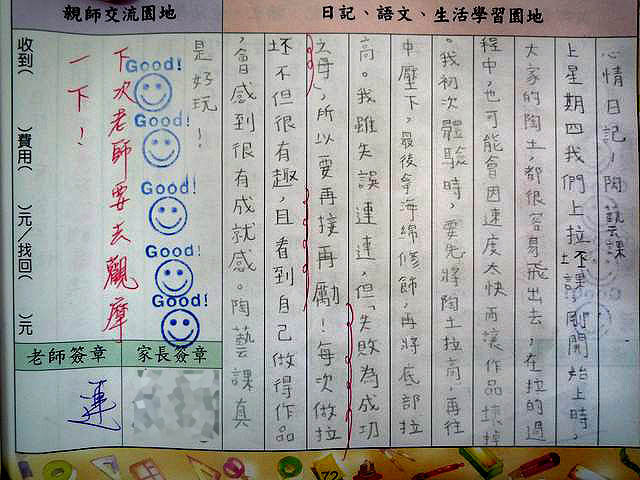 日記、語文、生活學習園地
心情日記！陶藝課
上星期四我們上拉坯課，剛開始上時，
大家的陶土，都很容易飛出去，在拉的過
程中，也可能會因速度太快而讓作品壞掉
。我初次體驗時，要先將陶土拉高，再往
中壓下，最後拿海綿修飾，再將底部拉
高。我雖失誤連連，但「失敗為成功
之母」，所以要再接再勵！每次做拉
坯不但很有趣，且看到自己做得作品
，會感到很有成就感。陶藝課真
是好玩！
親師交流園地
Good!
Good!
Good!
Good!
Good!
下次老師要去觀摩
一下！
收到（ ）費用（ ）元／找回（ ）元
家長簽章
老師簽章
蓮
72